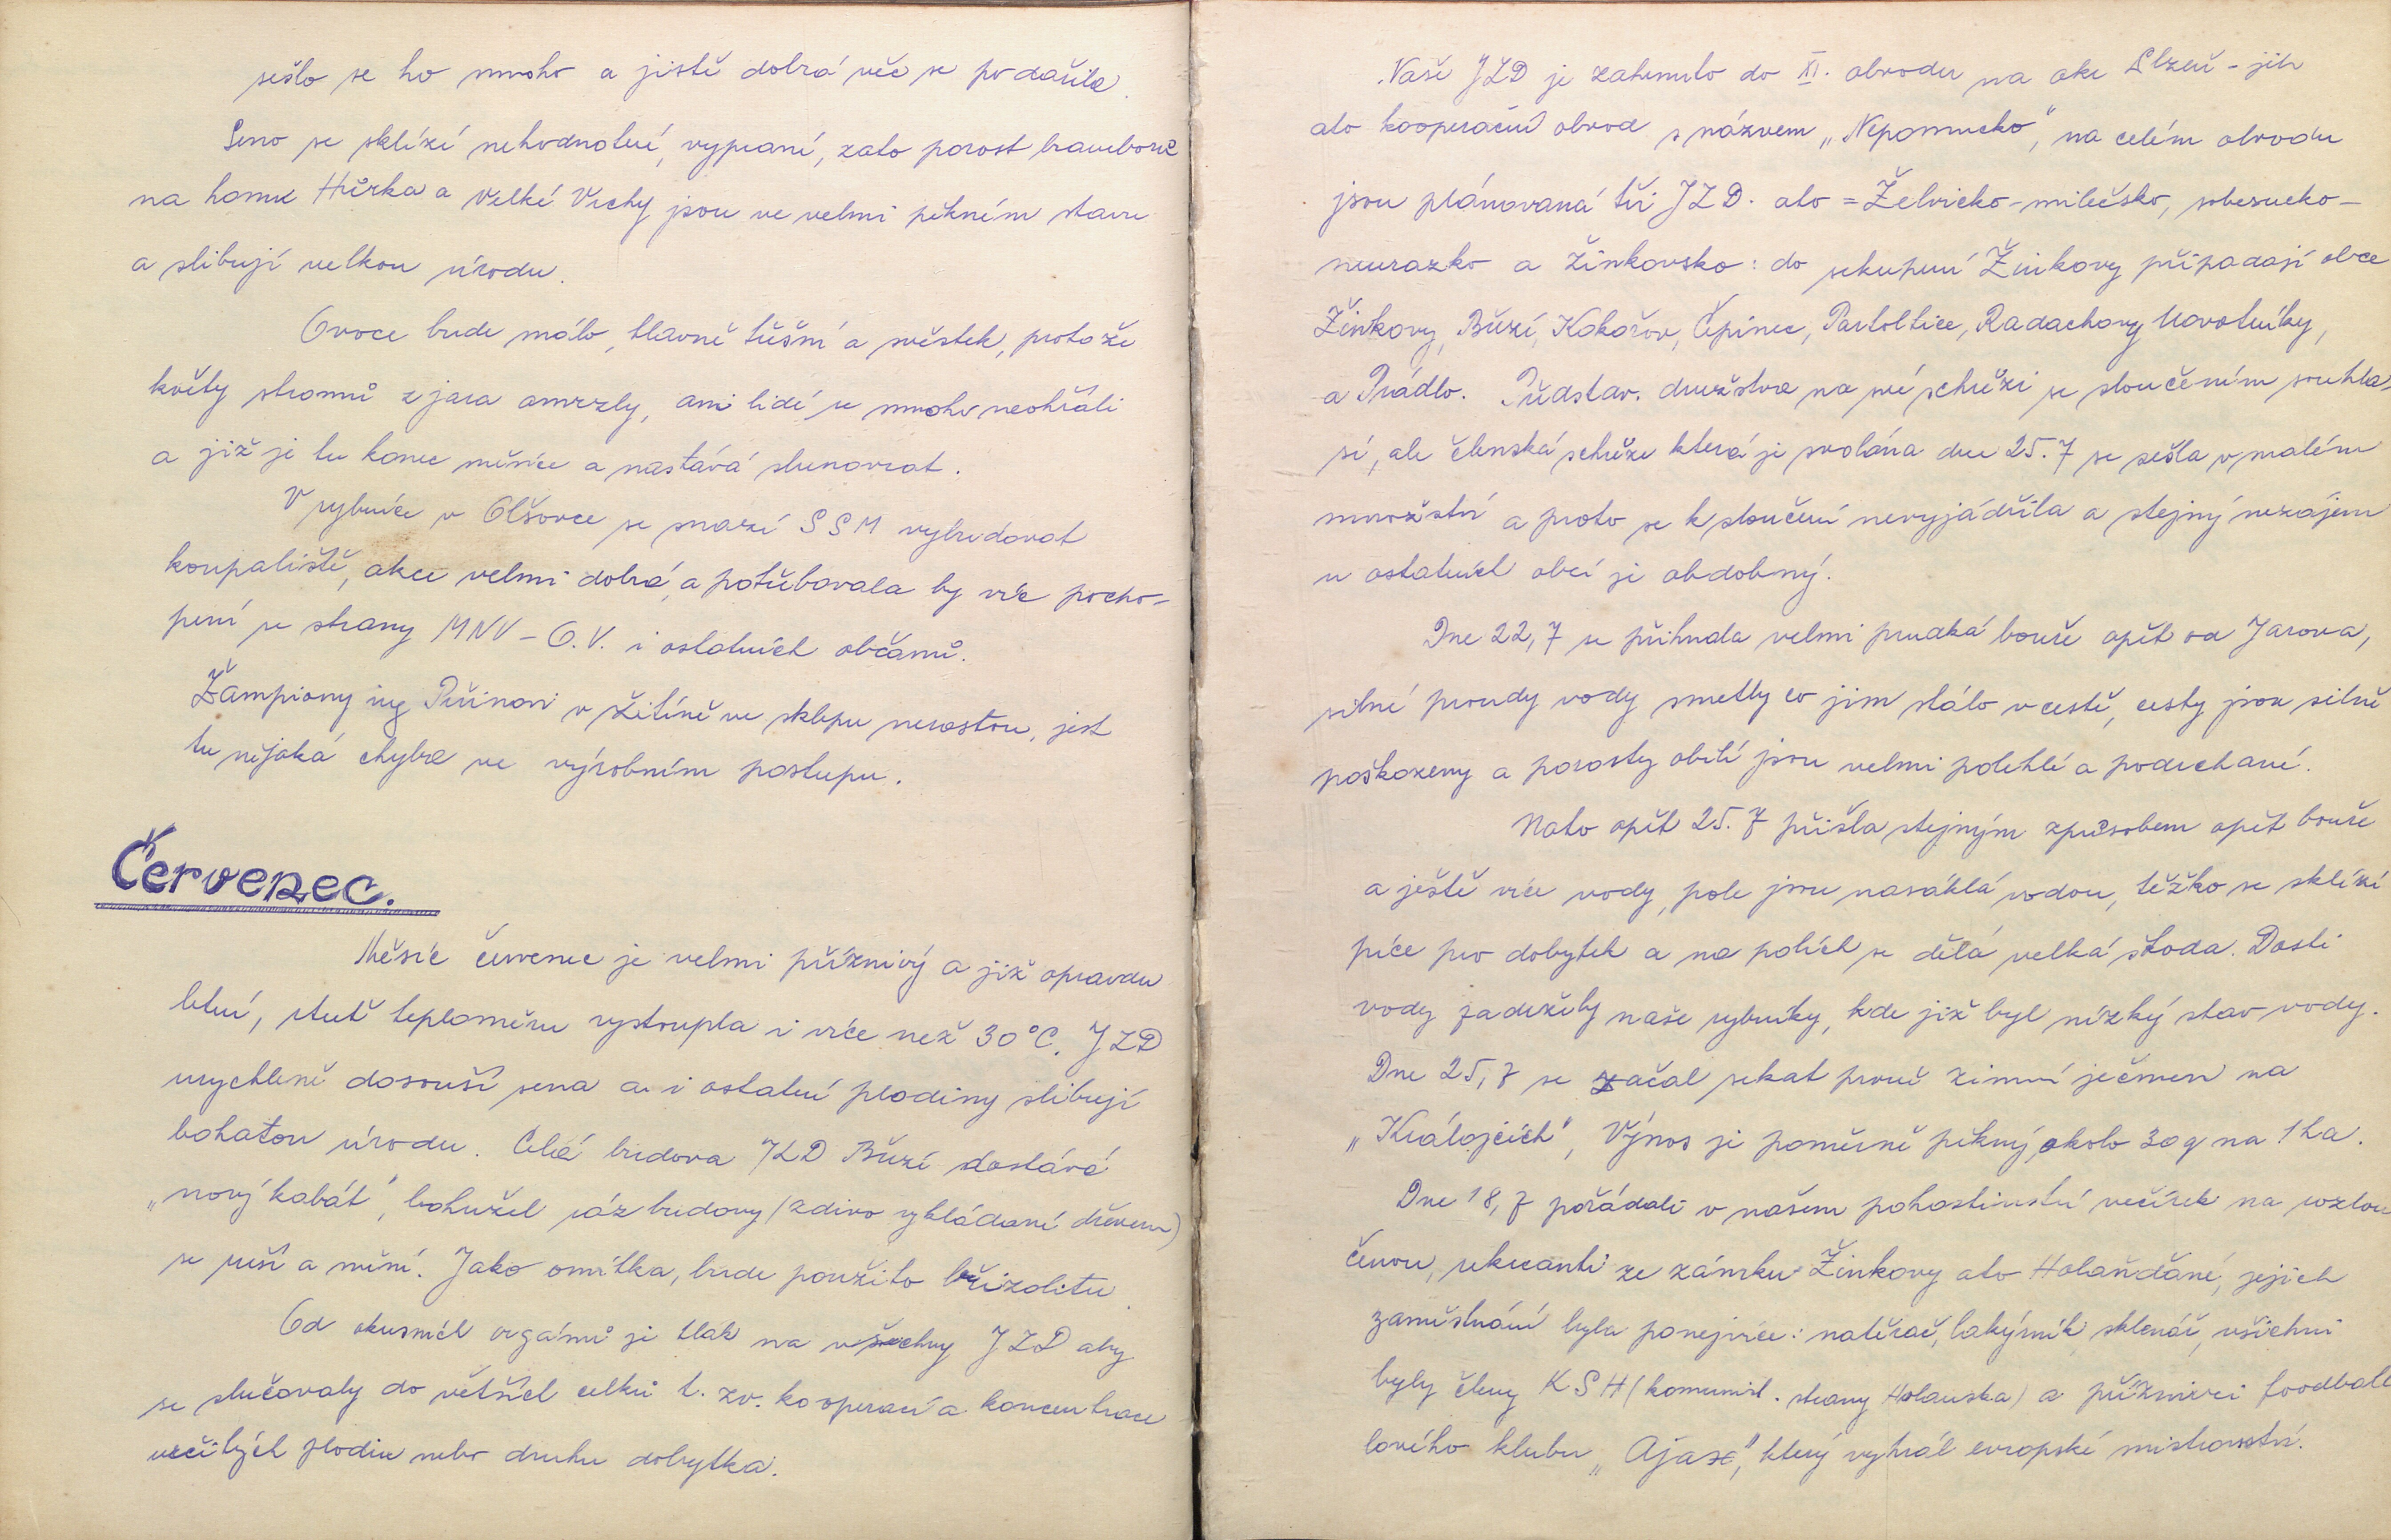 sešlo se ho mnoho a jistě dobrá věc se podařila.
Seno se sklízí nehodnotné, vyprané, zato porost brambor
na honu Hůrka a Velké Vrchy jsou ve velmi pěkném stavu
a slibují velkou úrodu.
Ovoce bude málo, hlavně třešní a švestek, protože
květy stromů z jara omrzly, ani lidé se mnoho neohřáli
a již je tu konec měsíce a nastává slunovrat.
V rybníce v Olšovce se snaží SSM vybudovat
koupaliště, akce velmi dobrá, a potřebovala by více pocho-
pení se strany MNV - O.V. i ostatních občanů.
Žampiony ing Peřinovi v Žitíně ve sklepu nerostou, jest
tu nějaká chyba ve výrobním postupu.
Červenec.
Měsíc červenec je velmi příznivý a již opravdu
letní, rtuť teploměru vystoupla i více než 30°C. JZD
urychleně dosouší sena a i ostatní plodiny slibují
bohatou úrodu. Celá budova JZD Březí dostává
„nový kabát", bohužel ráz budovy (zdivo vykládané dřevem)
se ruší a mění. Jako omítka, bude použito břizolitu.
Od okresních orgánů je tlak na všechny JZD aby
se slučovaly do větších celků t. zv. kooperací a koncentrace
určitých plodin nebo druhu dobytka.
Naše JZD je zahrnuto do XI. obvodu na okr Plzeň - jih
ato kooperační obvod s názvem „Nepomucko", na celém obvodu
jsou plánovaná tři JZD. ato = Želvicko - milečsko, sobesucko -
neurazko a žinkovsko: do sekupení Žinkovy připadají obce
Žinkovy, Březí, Kokořov, Čepinec, Partoltice, Radochovy Novotníky,
a Prádlo. Představ. družstva na své schůzi se sloučením souhla-
sí, ale členská schůze která je svolána dne 25.7 se sešla v malém
množství a proto se k sloučení nevyjádřila a stejný nezájem
u ostatních obcí je obdobný.
Dne 22,7 se přihnala velmi prudká bouře opět od Jarova,
silné proudy vody smetly co jim stálo v cestě, cesty jsou silně
poškozeny a porosty obilí jsou velmi polehlé a podrchané.
Nato opět 25.7 přišla stejným způsobem opět bouře
a ještě více vody, pole jsou nasáklá vodou, těžko se sklízí
píce pro dobytek a na polích se dělá velká škoda. Dosti
vody zadržely naše rybníky, kde již byl nízký stav vody.
Dne 25,7 se začal sekat prvně zimní ječmen na
„Královicích", Výnos je poměrně pěkný, okolo 30 q na 1 ha.
Dne 18,7 pořádali v našem pohostinství večírek na rozlou
čenou, rekreanti ze zámku Žinkovy ato Holanďané, jejich
zaměstnání byla ponejvíce: natěrač, lakýrník sklenář, všichni
byly členy KSH (komunist. strany Holandska) a příznivci foodball
lového klubu „Ajax", který vyhrál evropské mistrovství.